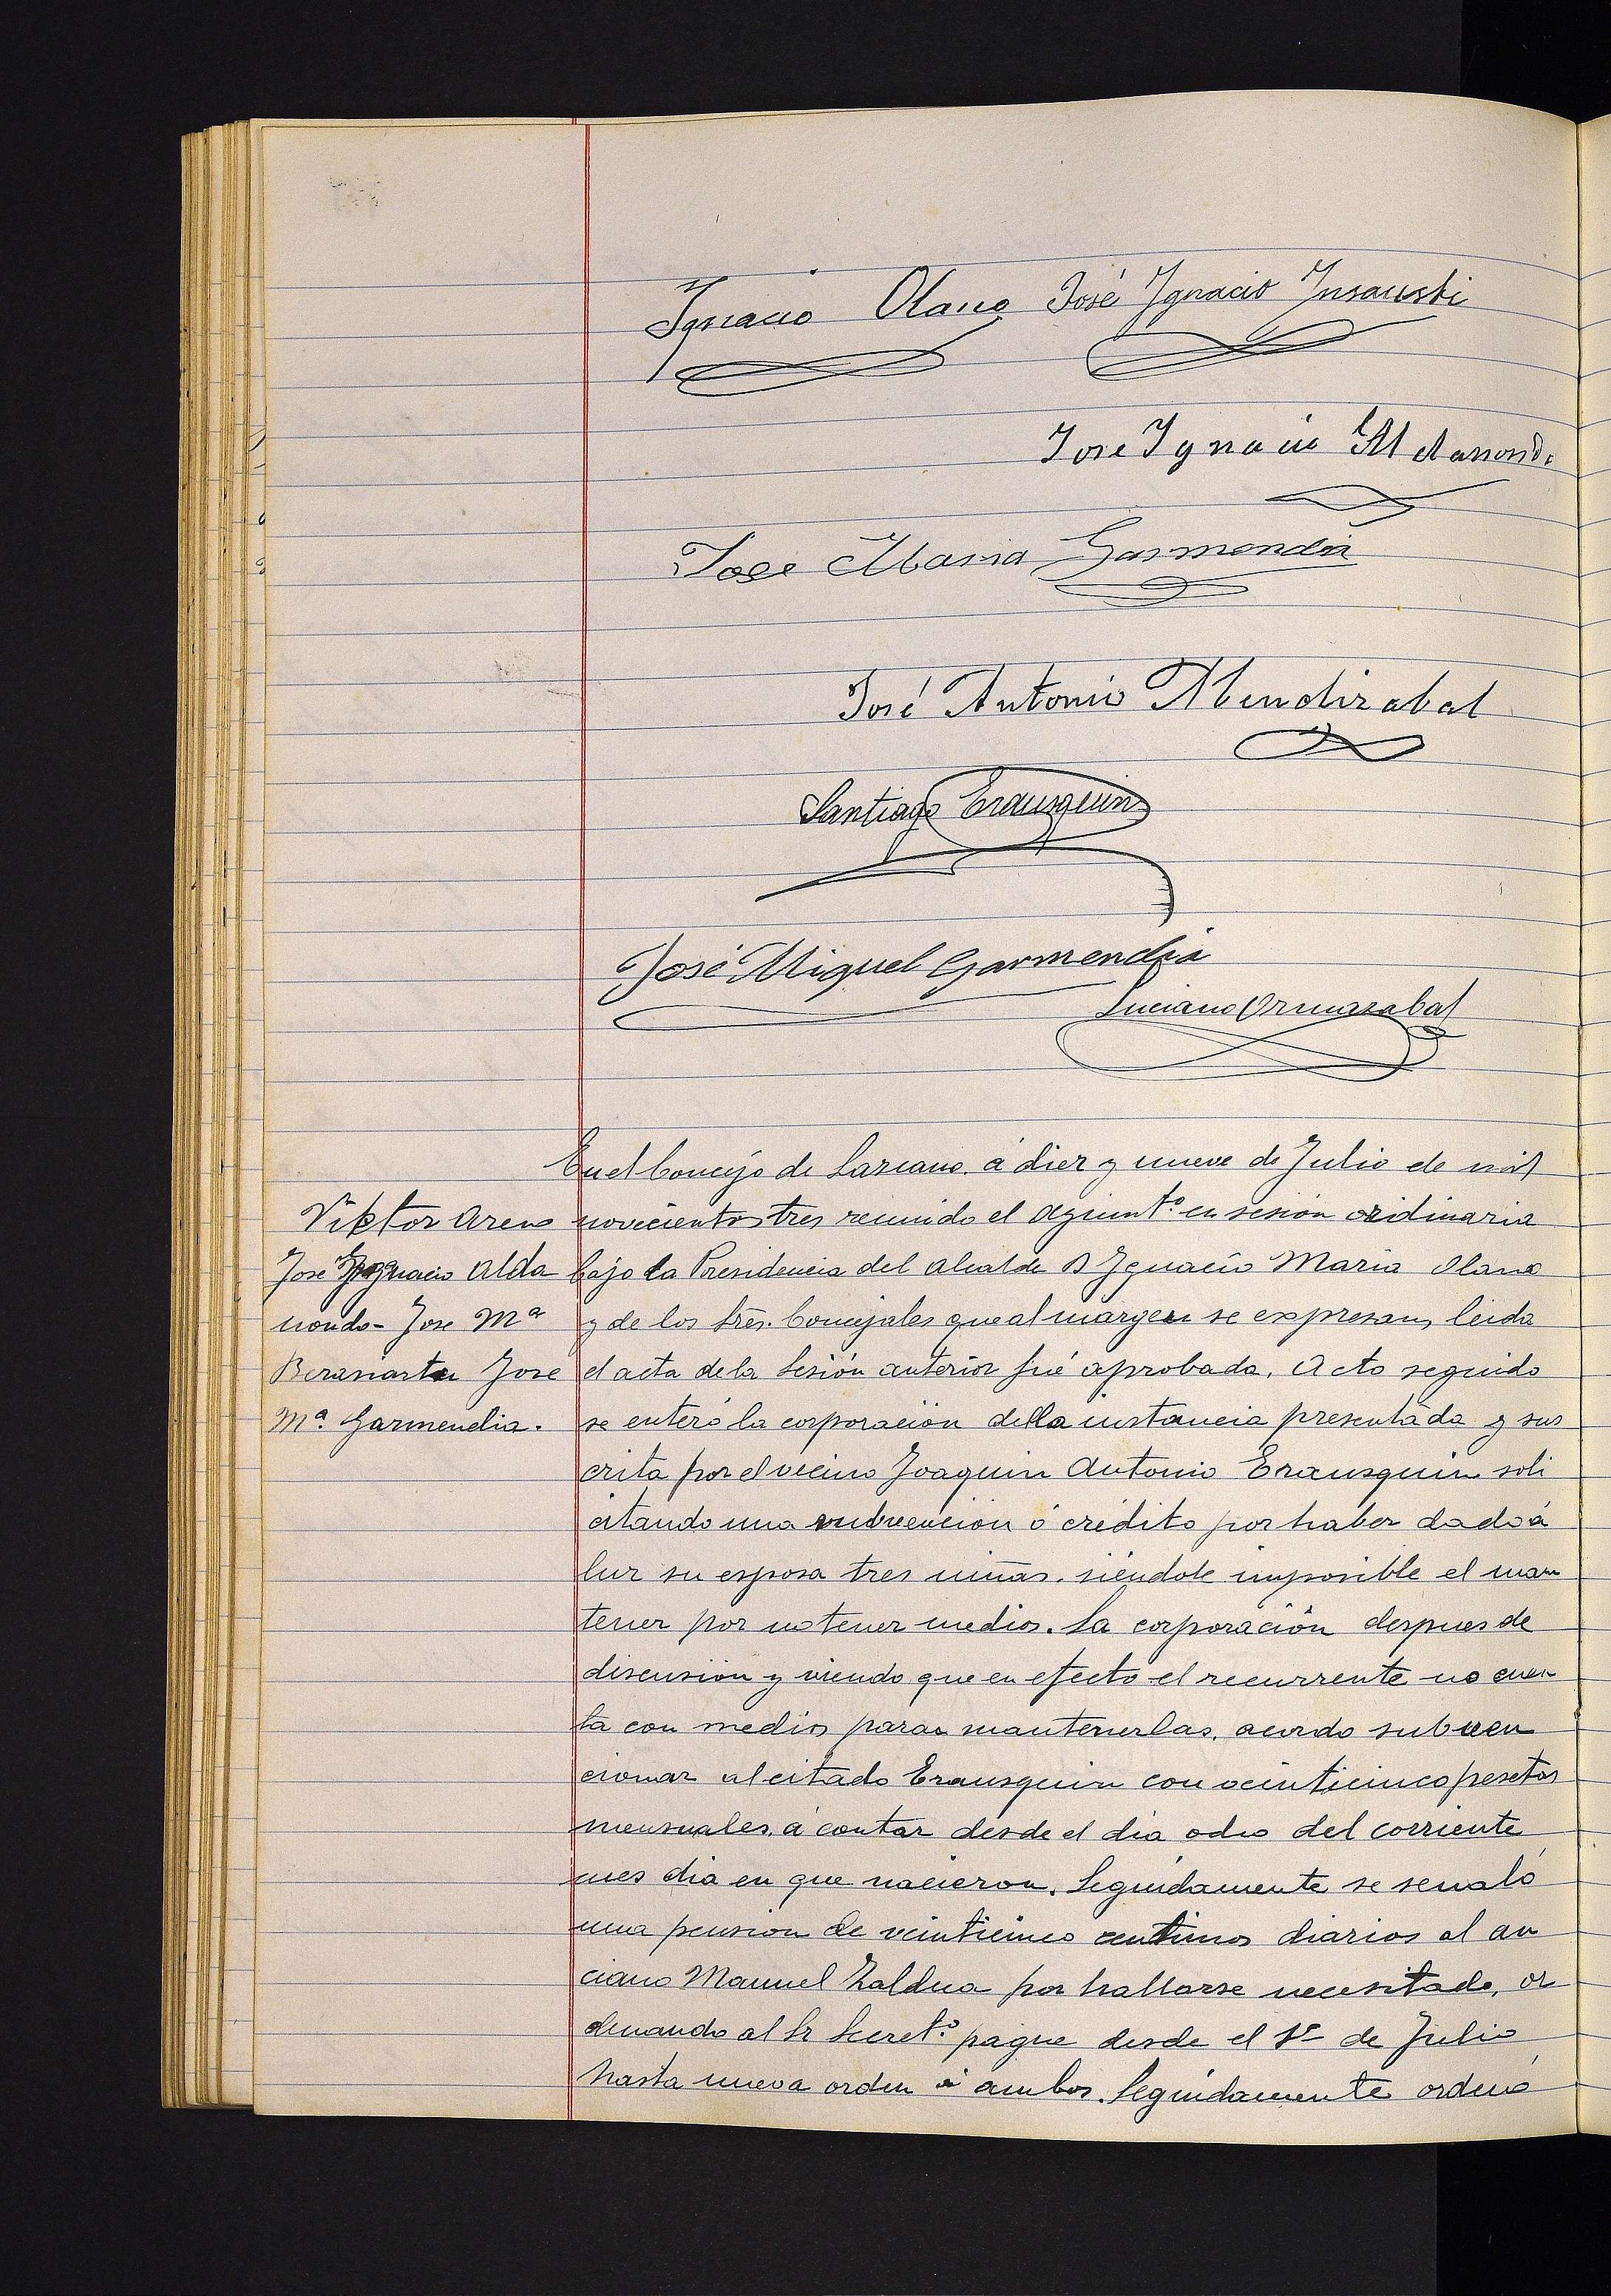 Ignacio Olano José Ygnacio Insausti
Jose Ygnacio Aldanondo
Jose Maria Garmendia
José Antonio Mendizabal
Santiago Erausquin
José Miguel Garmendia
Luciano Ormazabal
En el Concejo de Lazcano á diez y nueve de Julio de mil
novecientos tres reunido el Ayuntº en sesión ordinaria
bajo la Presidencia del Alcalde D Ygnacio Maria Olano
y de los Sres. Concejales que al margen se expresan, leida
el acta de la Sesión anterior fué aprobada. Acto seguido
se enteró la corporación de la instancia presentada y sus
crita por el vecino Joaquin Antonio Erausquin soli
citando una subvención ó crédito por haber dado á
luz su esposa tres niñas, siéndole imposible el man
tener por no tener medios. La corporación despues de
discusión y viendo que en efecto el recurrente no cuen
ta con medios para mantenerlas, acordo subven
cionar al citado Erausquin con veinticinco pesetas
mensuales, á contar desde el dia ocho del corriente
mes dia en que nacieron. Seguidamente se senaló
una pension de veinticinco centimos diarios al an
ciano Manuel Zaldua por hallarse necesitado, or
denando al Sr Secretº pague desde el 1º de Julio
hasta nueva orden á ambos. Seguidamente ordenó
Viktor Arens
Jose Ygnacio Alda
nondo- Jose Mª
Berasiartu Jose
Mª Garmendia.